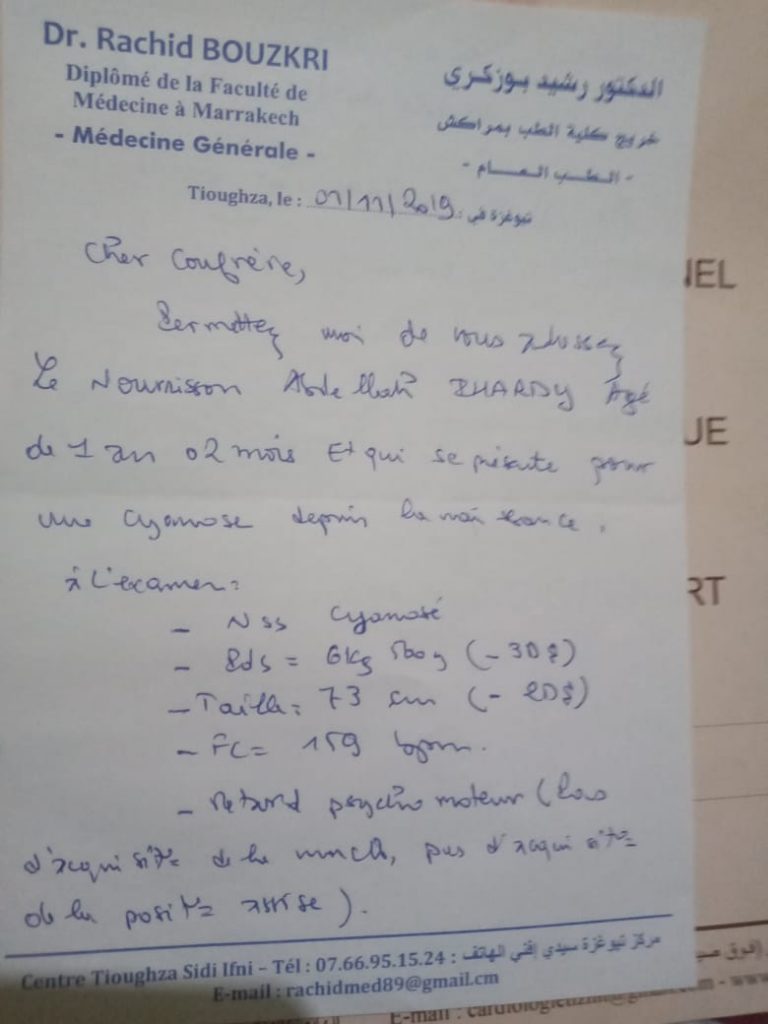 Dr. Rachid BOUZKRI
Diplômé de la Faculté de
Médecine à Marrakech
- Médecine Générale -
الدكتور رشيد بوزكري
خريج كلية الطب بمراكش
- الطب العام -
Tioughza, le : 01/11/2019 تيوغزة في :
Cher Confrère,
Permettez moi de vous adresser
Le Nourrisson Abdellah Âgé
de 1 an 02 mois Et qui se présente pour
une cyanose depuis la naissance.
à L'examen :
- Nss cyanosé
- Pds = 6kg 500g (-3DS)
- Taille = 73 cm (-2DS)
- FC = 159 bpm.
- Retard psychomoteur (Pas
d'acquisit° de la marche, pas d'acquisit°
de la posit° assise).
Centre Tioughza Sidi Ifni - Tél : 07.66.95.15.24 : مركز تيوغزة سيدي إفني الهاتف
E-mail : rachidmed89@gmail.cm
NEL
UE
RT
E-mail :